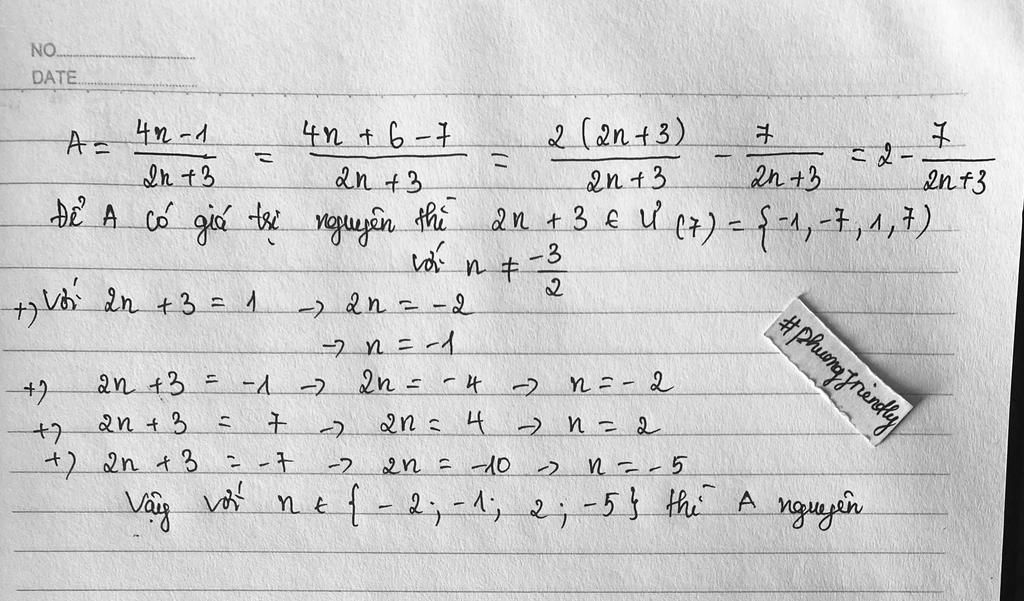 NO
DATE
A = \frac{4n-1}{2n+3} = \frac{4n+6-7}{2n+3} = \frac{2(2n+3)}{2n+3} - \frac{7}{2n+3} = 2 - \frac{7}{2n+3}
Để A có giá trị nguyên thì 2n + 3 ∈ Ư (7) = {-1, -7, 1, 7)
với n ≠ \frac{-3}{2}
+) Với 2n + 3 = 1 → 2n = -2
→ n = -1
+) 2n + 3 = -1 → 2n = -4 → n = -2
+) 2n + 3 = 7 → 2n = 4 → n = 2
+) 2n + 3 = -7 → 2n = -10 → n = -5
Vậy với n ∈ { -2; -1; 2; -5} thì A nguyên
#phuongfriendly